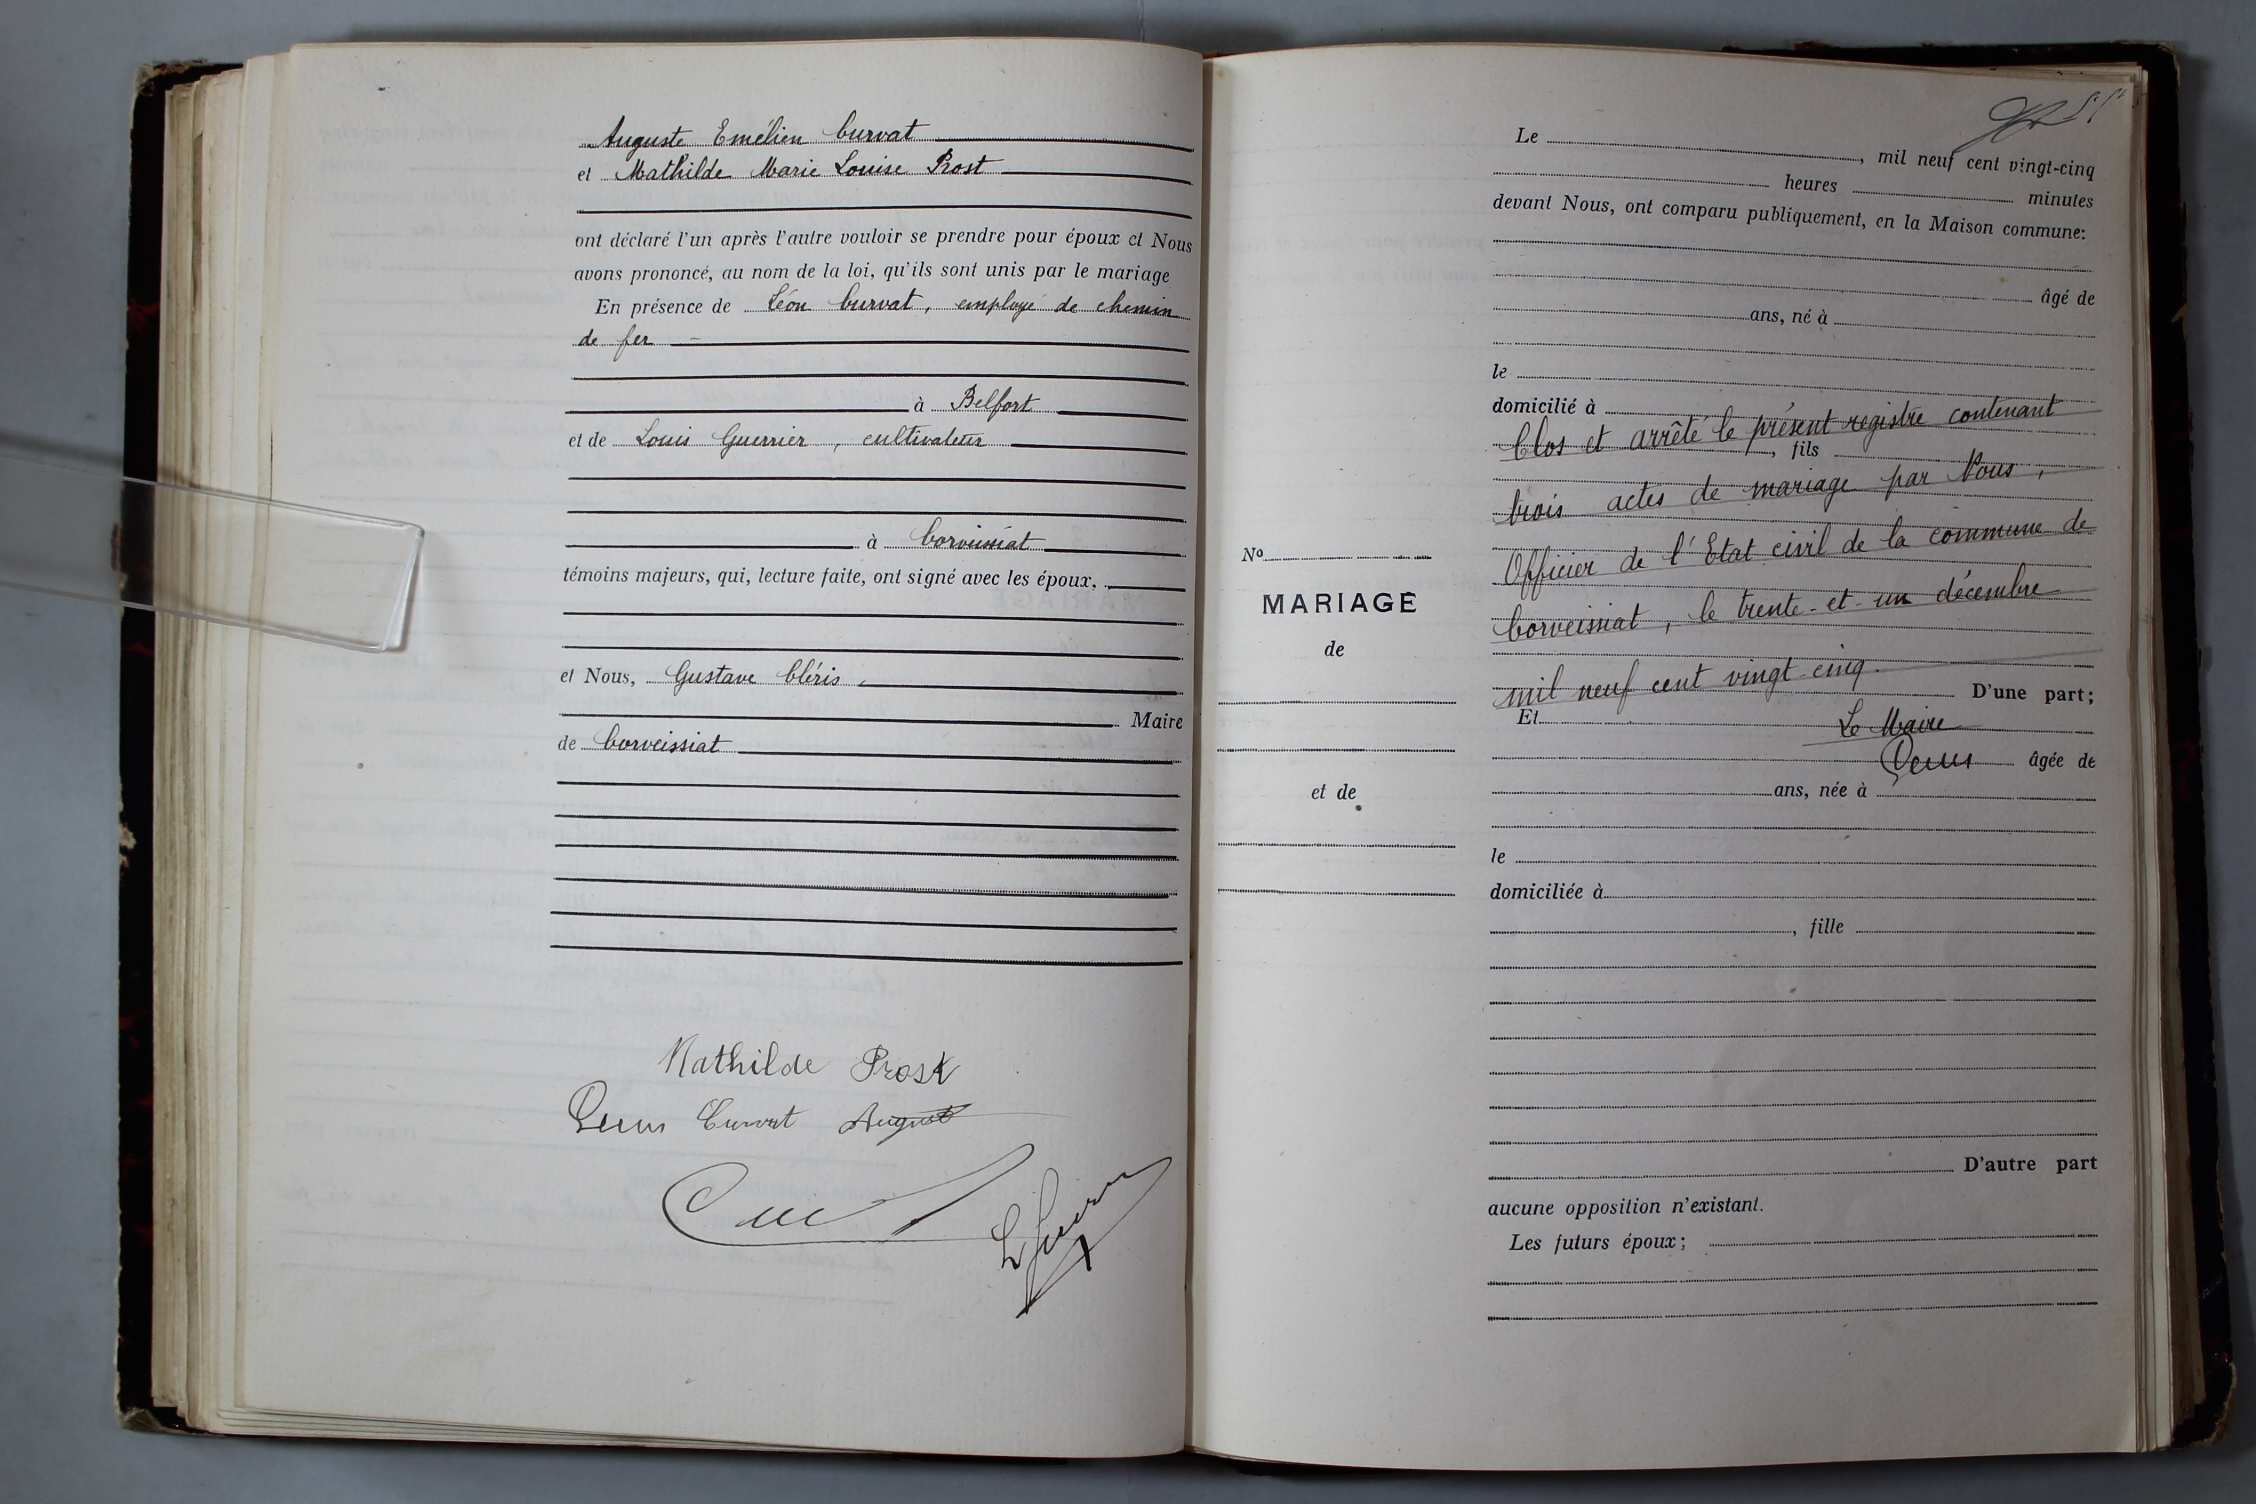 Auguste Emélien Curvat
et Mathilde Marie Louise Prost
ont déclaré l'un après l'autre vouloir se prendre pour époux et Nous
avons prononcé, au nom de la loi, qu'ils sont unis par le mariage
En présence de Léon Curvat, employé de chemin
de fer
à Belfort
et de Louis Guerrier, cultivateur
à Corveissiat
témoins majeurs, qui, lecture faite, ont signé avec les époux,
et Nous, Gustave Cléris,
Maire
de Corveissiat
Mathilde Prost
Curvat August
Le , mil neuf cent vingt-cinq
heures minutes
devant Nous, ont comparu publiquement, en la Maison commune:
âgé de
ans, né à
le
domicilié à
Clos et arrêté le présent registre contenant
, fils
trois actes de mariage par Nous,
Officier de l'Etat civil de la commune de
Corveissiat, le trente-et-un décembre
mil neuf cent vingt-cinq.
D'une part;
Et Le Maire
âgée de
ans, née à
le
domiciliée à
, fille
D'autre part
aucune opposition n'existant.
Les futurs époux;
No
MARIAGE
de
et de